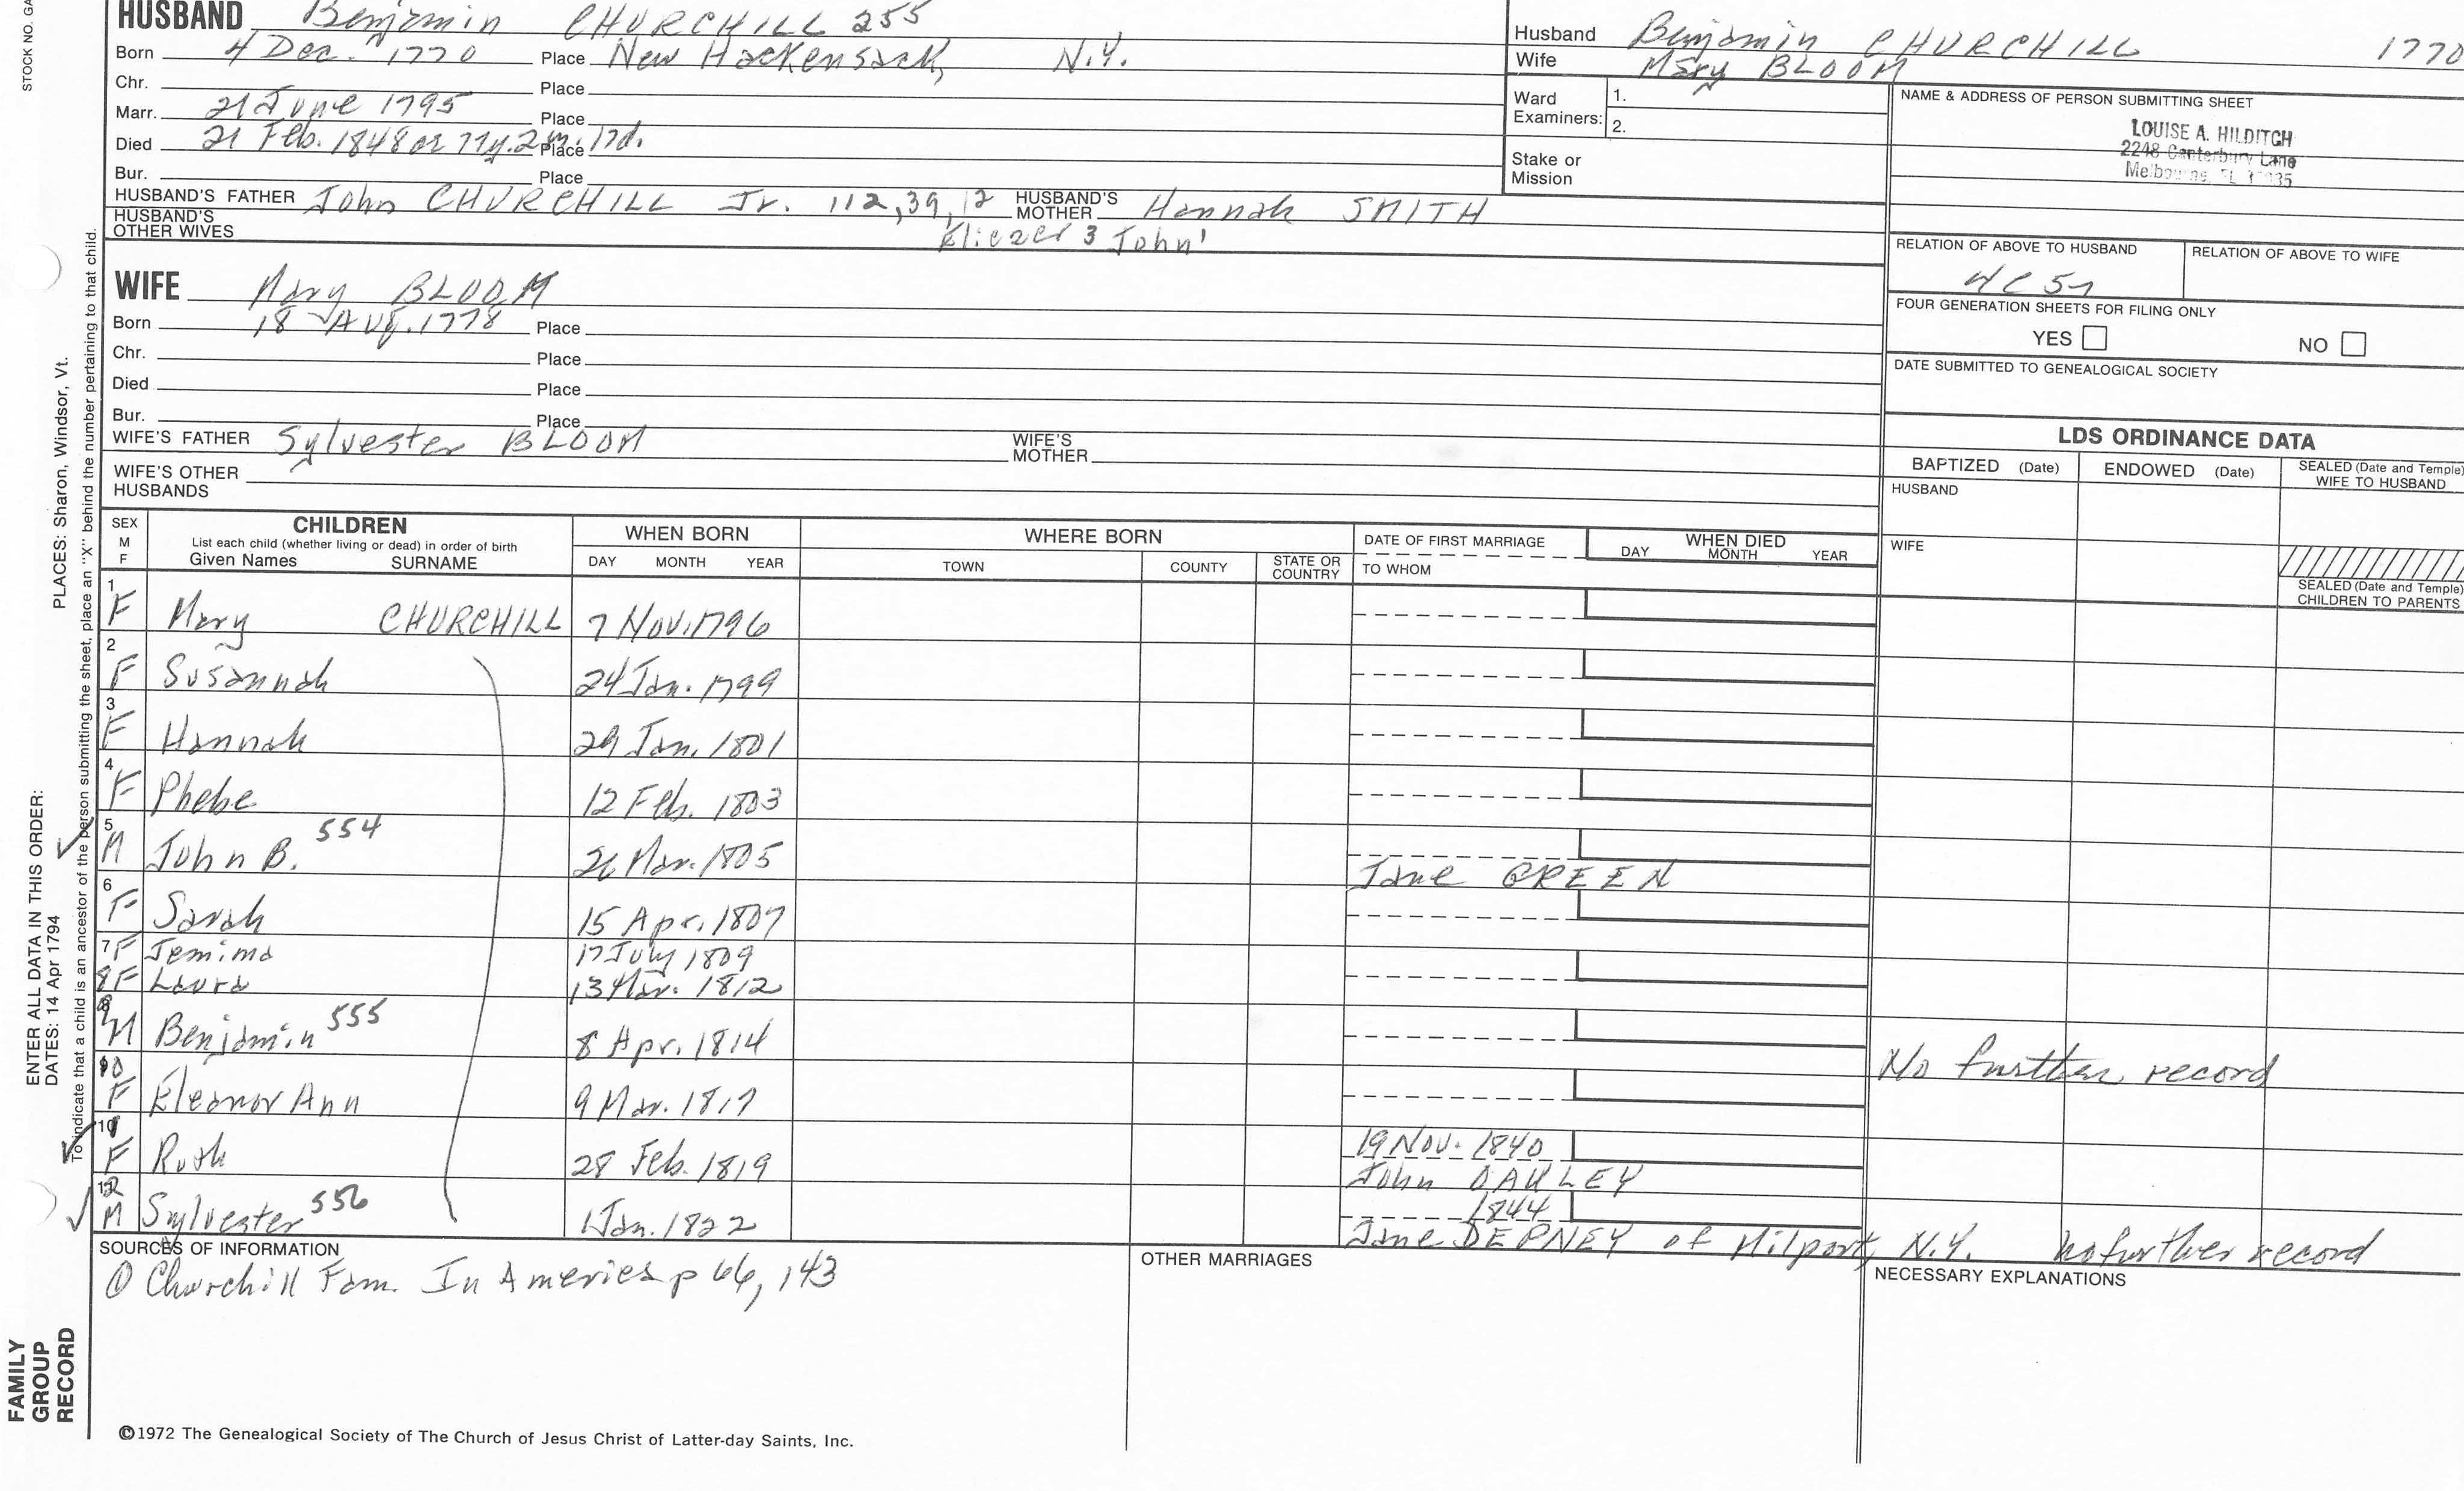 HUSBAND Benjamin CHURCHILL 255
Born 4 Dec. 1770 Place New Hackensack, N.Y.
Chr. Place
Marr. 21 June 1795 Place
Died 21 Feb. 1848 or 77y. 2m. 17d. Place
Bur. Place
HUSBAND'S FATHER John CHURCHILL Jr. 112, 39, 12 HUSBAND'S MOTHER Hannah SMITH
HUSBAND'S OTHER WIVES Eliezer 3 John 1
WIFE Mary BLOOM
Born 18 Aug. 1778 Place
Chr. Place
Died Place
Bur. Place
WIFE'S FATHER Sylvester BLOOM WIFE'S MOTHER
WIFE'S OTHER HUSBANDS
Husband Benjamin CHURCHILL 1770
Wife Mary BLOOM
Ward Examiners: 1.
2.
Stake or Mission
NAME & ADDRESS OF PERSON SUBMITTING SHEET
LOUISE A. HILDITCH
2248 Canterbury Lane
Melbourne, FL
RELATION OF ABOVE TO HUSBAND RELATION OF ABOVE TO WIFE
4C5
FOUR GENERATION SHEETS FOR FILING ONLY
YES NO
DATE SUBMITTED TO GENEALOGICAL SOCIETY
LDS ORDINANCE DATA
BAPTIZED (Date) ENDOWED (Date) SEALED (Date and Temple) WIFE TO HUSBAND
HUSBAND
WIFE
SEALED (Date and Temple) CHILDREN TO PARENTS
SEX M F CHILDREN WHEN BORN WHERE BORN DATE OF FIRST MARRIAGE WHEN DIED
List each child (whether living or dead) in order of birth
Given Names SURNAME DAY MONTH YEAR TOWN COUNTY STATE OR COUNTRY TO WHOM DAY MONTH YEAR
1 F Mary CHURCHILL 7 Nov. 1796
2 F Susannah 24 Jan. 1799
3 F Hannah 29 Jan. 1801
4 F Phebe 12 Feb. 1803
5 M John B. 554 26 Mar. 1805 Jane GREEN
6 F Sarah 15 Apr. 1807
7 F Jemima 17 July 1809
8 F Laura 13 Mar. 1812
9 M Benjamin 555 8 Apr. 1814 No further record
10 F Eleanor Ann 9 Mar. 1817
11 F Ruth 28 Feb. 1819 19 Nov. 1840
John OAKLEY
12 M Sylvester 556 1 Jan. 1822 1844
Jane DEPNEY of Milport, N.Y. no further record
SOURCES OF INFORMATION
① Churchill Fam. In America p 66, 143
OTHER MARRIAGES
NECESSARY EXPLANATIONS
©1972 The Genealogical Society of The Church of Jesus Christ of Latter-day Saints, Inc.
FAMILY
GROUP
RECORD
ENTER ALL DATA IN THIS ORDER:
DATES: 14 Apr 1794
PLACES: Sharon, Windsor, Vt.
To indicate that a child is an ancestor of the person submitting the sheet, place an "X" behind the number pertaining to that child.
STOCK NO.